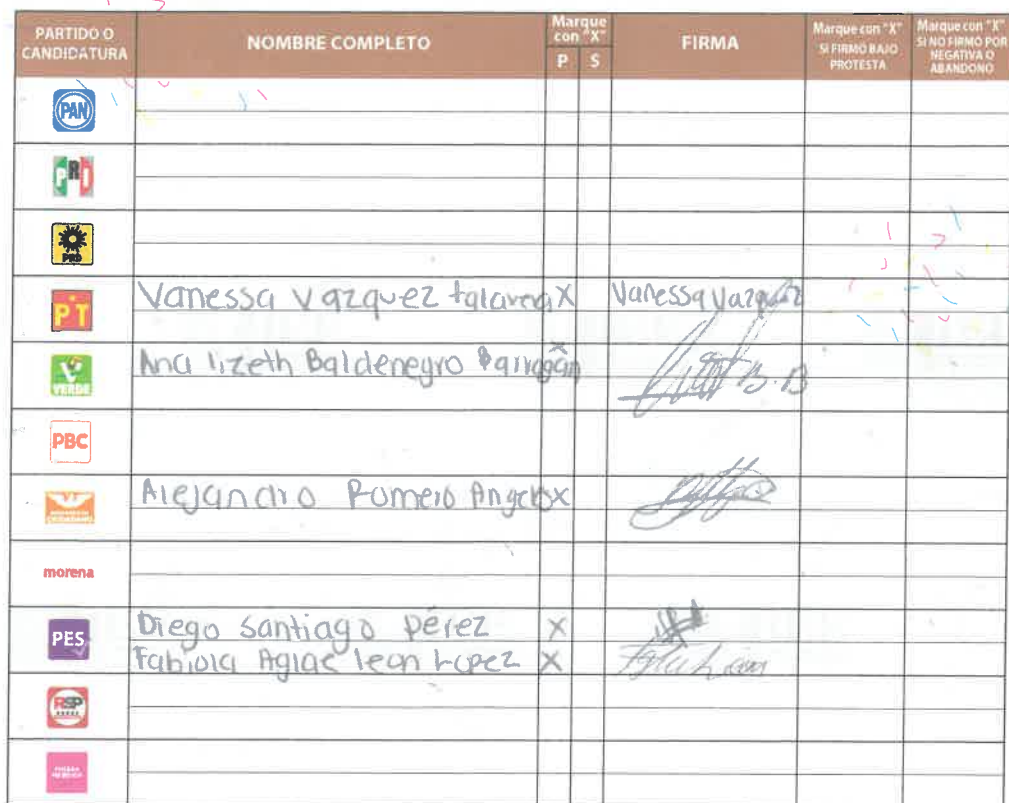 PARTIDO O CANDIDATURA
NOMBRE COMPLETO
Marque con "X"
P S
FIRMA
Marque con "X" SI FIRMÓ BAJO PROTESTA
Marque con "X" SI NO FIRMÓ POR NEGATIVA O ABANDONO
PAN
PRI
PRD
PT Vanessa Vazquez talavera X Vanessa Vazquez
VERDE Ana lizeth Baldenegro Barragán X B.B
PBC
Alejandro Romero Angeles X
morena
PES Diego Santiago Pérez X
Fabiola Aglae leon Lopez X
RSP